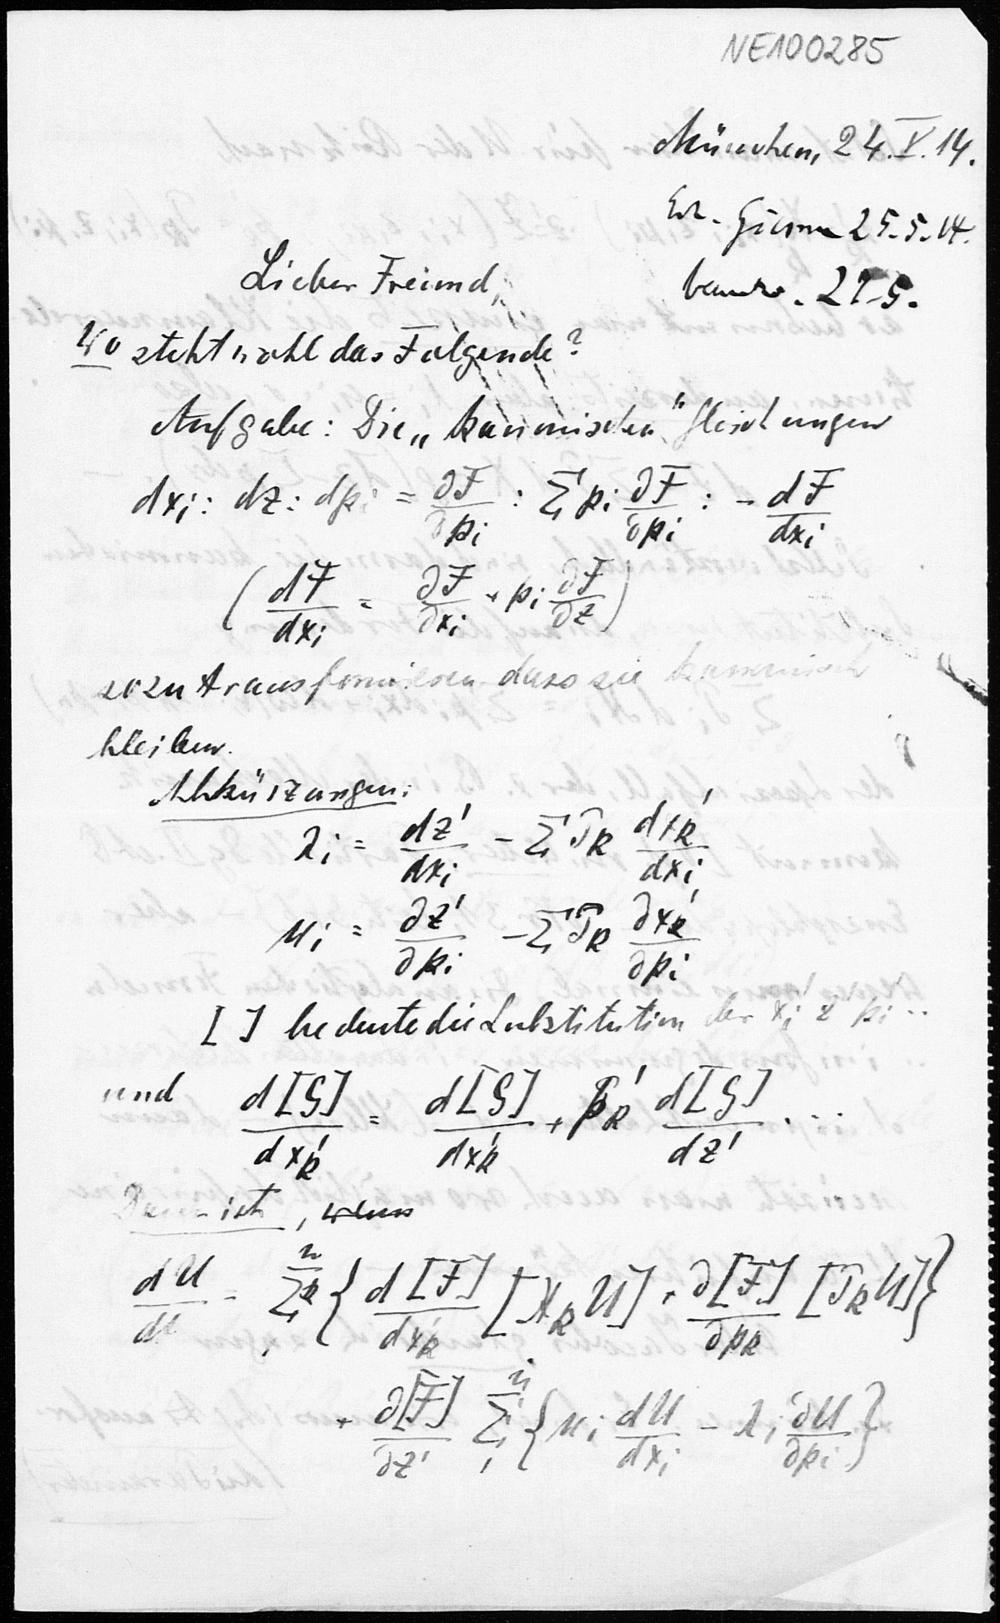 NE100285
München, 24.V.14.
25.5.14.
Lieber Freund,
Wo steht wohl das Folgende?
Aufgabe: Die „kanonischen" Gleichungen
dx_i : dz : dp_i = ∂F/∂p_i : Σ p_i ∂F/∂p_i : - dF/dx_i
( dF/dx_i = ∂F/∂x_i + p_i ∂F/∂z )
so zu transformieren dass sie kanonisch
bleiben.
Abkürzungen:
λ_i = dz'/dx_i - Σ P_k dx_k'/dx_i
μ_i = ∂z'/∂p_i - Σ P_k ∂x_k'/∂p_i
[ ] bedeute die Substitution der x_i' z' p_i' ..
und d[G]/dx_k' = d[G]/dx_k' + p_k' d[G]/dz' ...
Dann ist, wenn
dU/dt = Σ_1^n k { d[F]/dx_k' [X_k U] + ∂[F]/∂p_k [P_k U] }
+ ∂[F]/∂z' Σ_1^n i { μ_i dU/dx_i - λ_i ∂U/∂p_i }